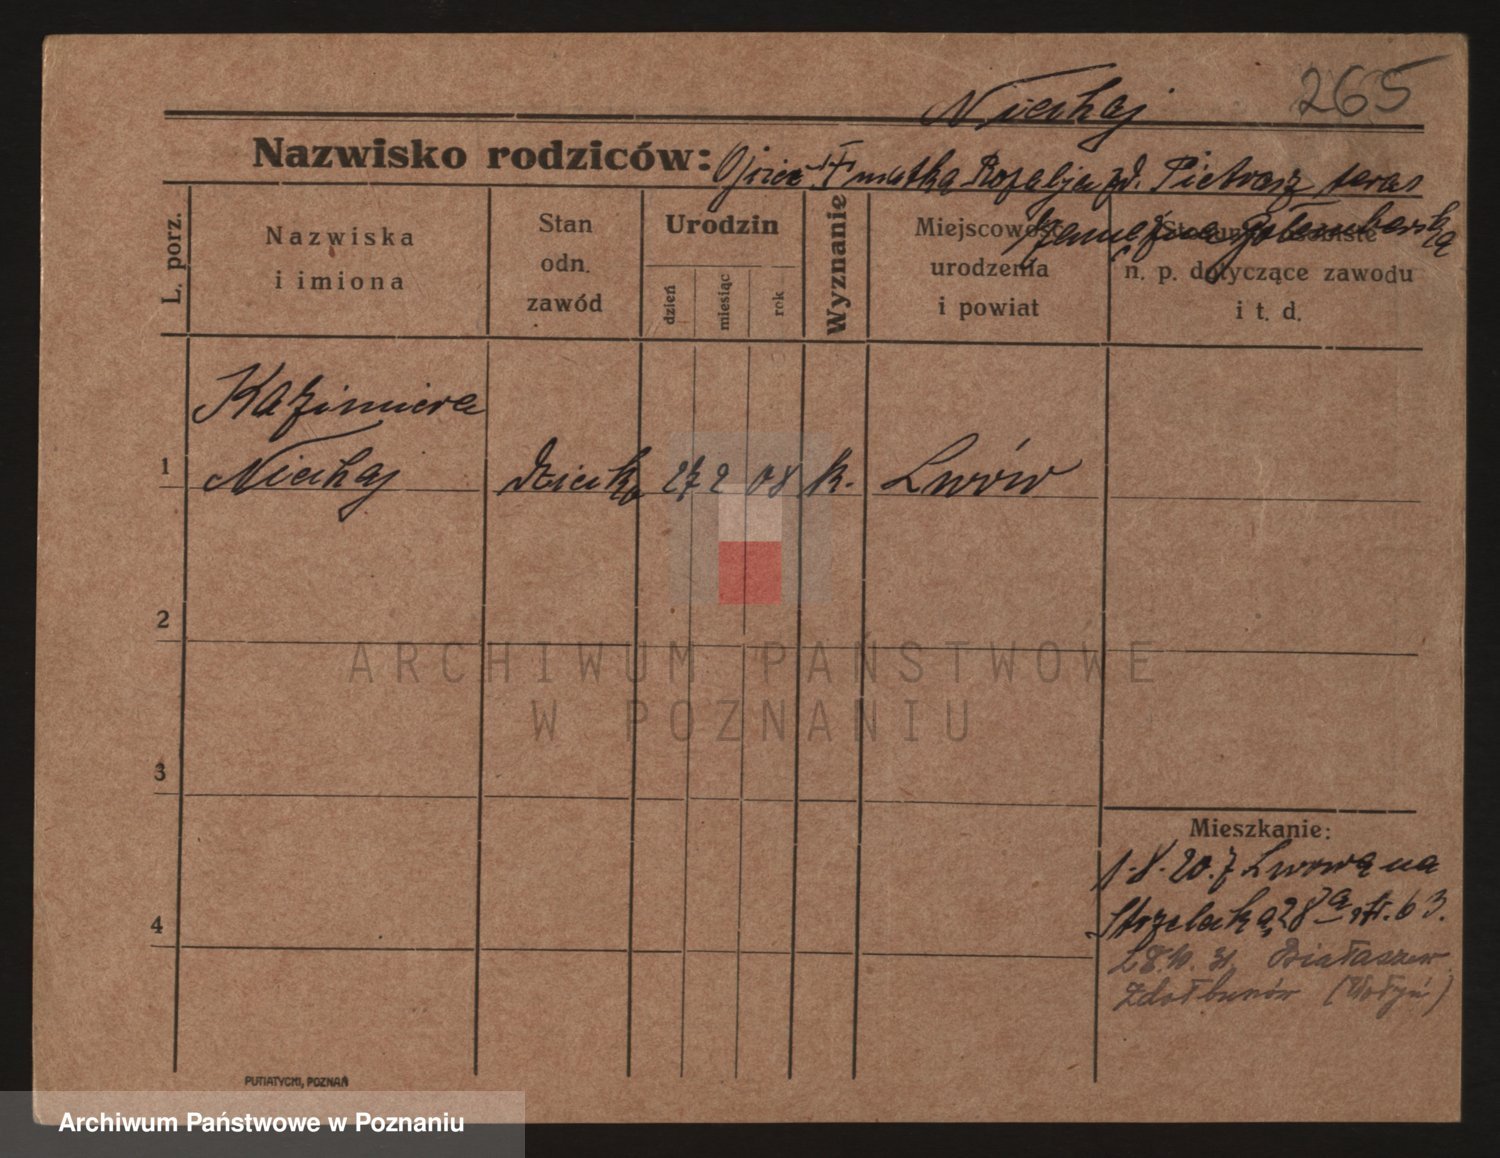 265
Niechaj
Nazwisko rodziców: Ojciec † matka Rozalja zd. Pietrasz teraz
zamężna
L. porz.
Nazwiska
i imiona
Stan
odn.
zawód
Urodzin
dzień
miesiąc
rok
Wyznanie
Miejscowość
urodzenia
i powiat
Stosunki osobiste
n. p. dotyczące zawodu
i t. d.
Kazimiera
1 Niechaj dziecko 27 2 08 k. Lwów
2
3
4
Mieszkanie:
1.8.20. z Lwowa na
Strzelecką 28 str. 63.
Zdołbunów (Wołyń)
PUTIATYCKI, POZNAŃ
ARCHIWUM PAŃSTWOWE
W POZNANIU
Archiwum Państwowe w Poznaniu